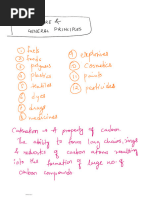 GENERAL PRINCIPLES
① fuels
② foods
③ polymers
④ plastics
⑤ textiles
⑥ dyes
⑦ drugs
⑧ medicines
⑨ explosives
⑩ Cosmetics
⑪ paints
⑫ pesticides
Catenation is A property of carbon.
The ability to form long chains, rings
& networks of carbon atoms resulting
into the formation of large no. of
carbon compounds